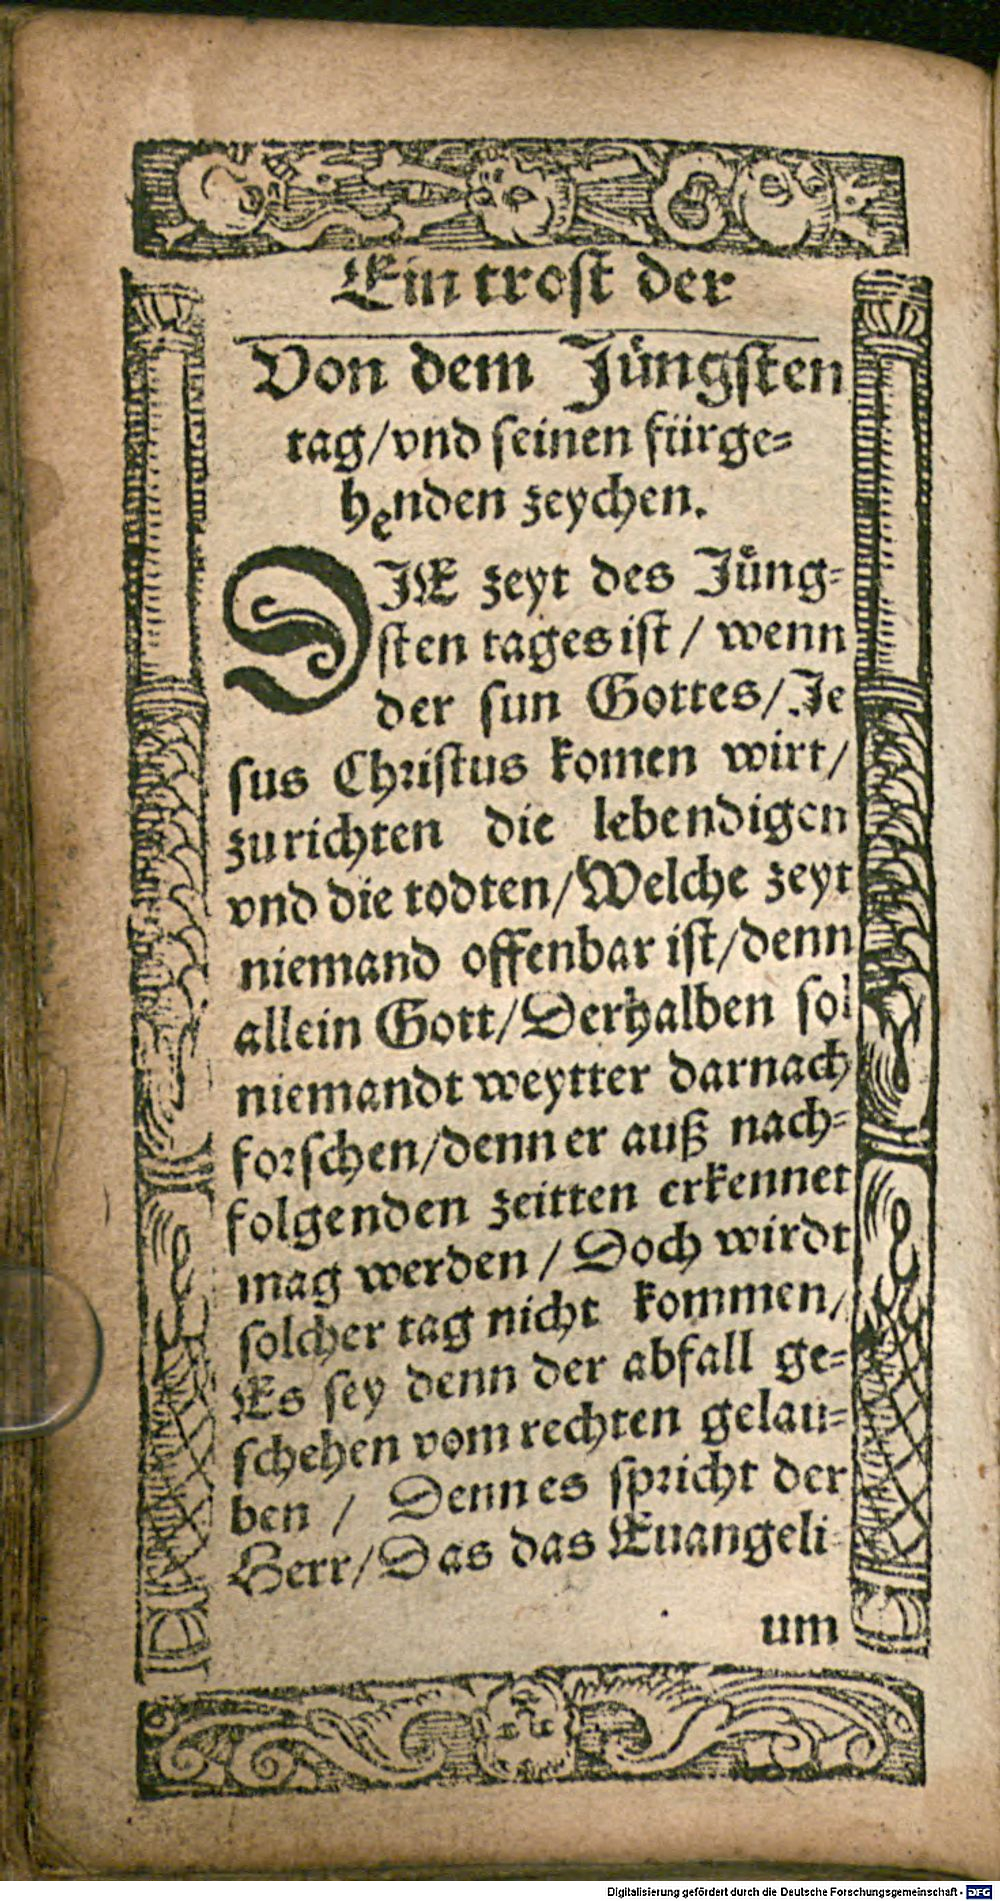 Ein trost der
Von dem Jüngsten
tag/vnd seinen fürge=
henden zeychen.
DIE zeyt des Jüng=
sten tages ist / wenn
der sun Gottes/Je
sus Christus komen wirt/
zurichten die lebendigen
vnd die todten/Welche zeyt
niemand offenbar ist/denn
allein Gott/Derhalben sol
niemandt weytter darnach
forschen/denn er auß nach=
folgenden zeitten erkennet
mag werden / Doch wirdt
solcher tag nicht kommen/
Es sey denn der abfall ge=
schehen vom rechten gelau=
ben / Denn es spricht der
Herr/Das das Euangeli=
um
Digitalisierung gefördert durch die Deutsche Forschungsgemeinschaft - DFG